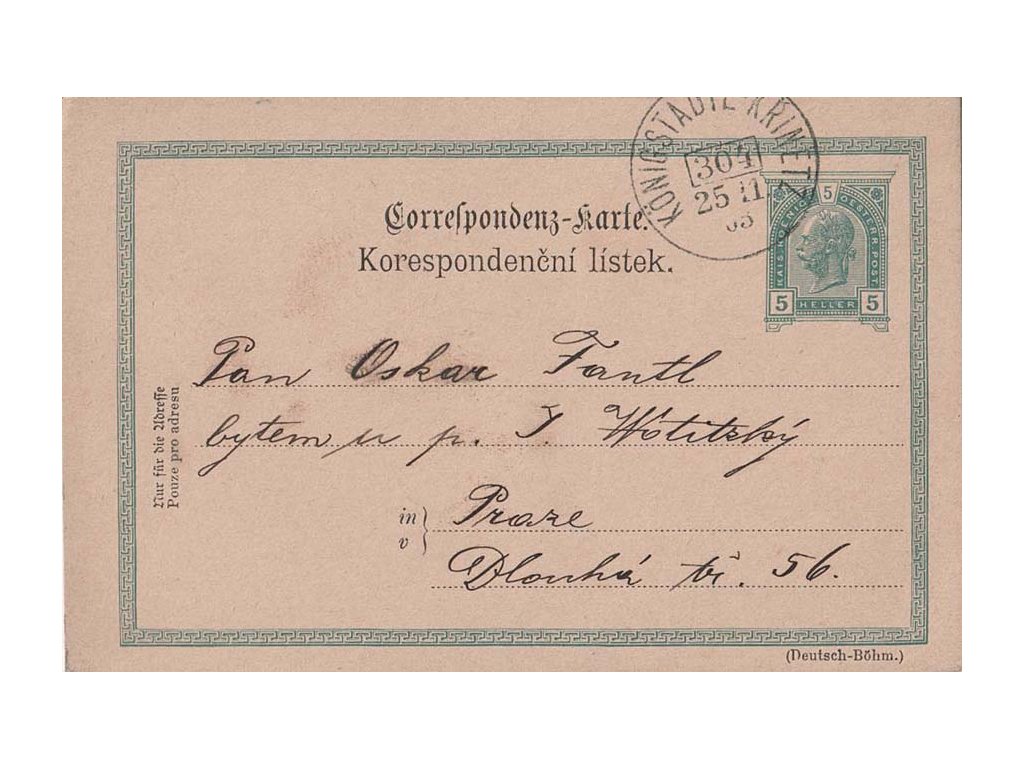 KÖNIGSTADTL-KŘINETZ
304
25 11
03
Correspondenz-Karte.
Korespondenční lístek.
KAIS. KOENIGL. OESTERR. POST.
5
5 HELLER 5
Pan Oskar Fantl
bytem u p. I Wotitzký
in
v
Praze
Dlouhá tř. 56.
Nur für die Adresse
Pouze pro adresu
(Deutsch-Böhm.)